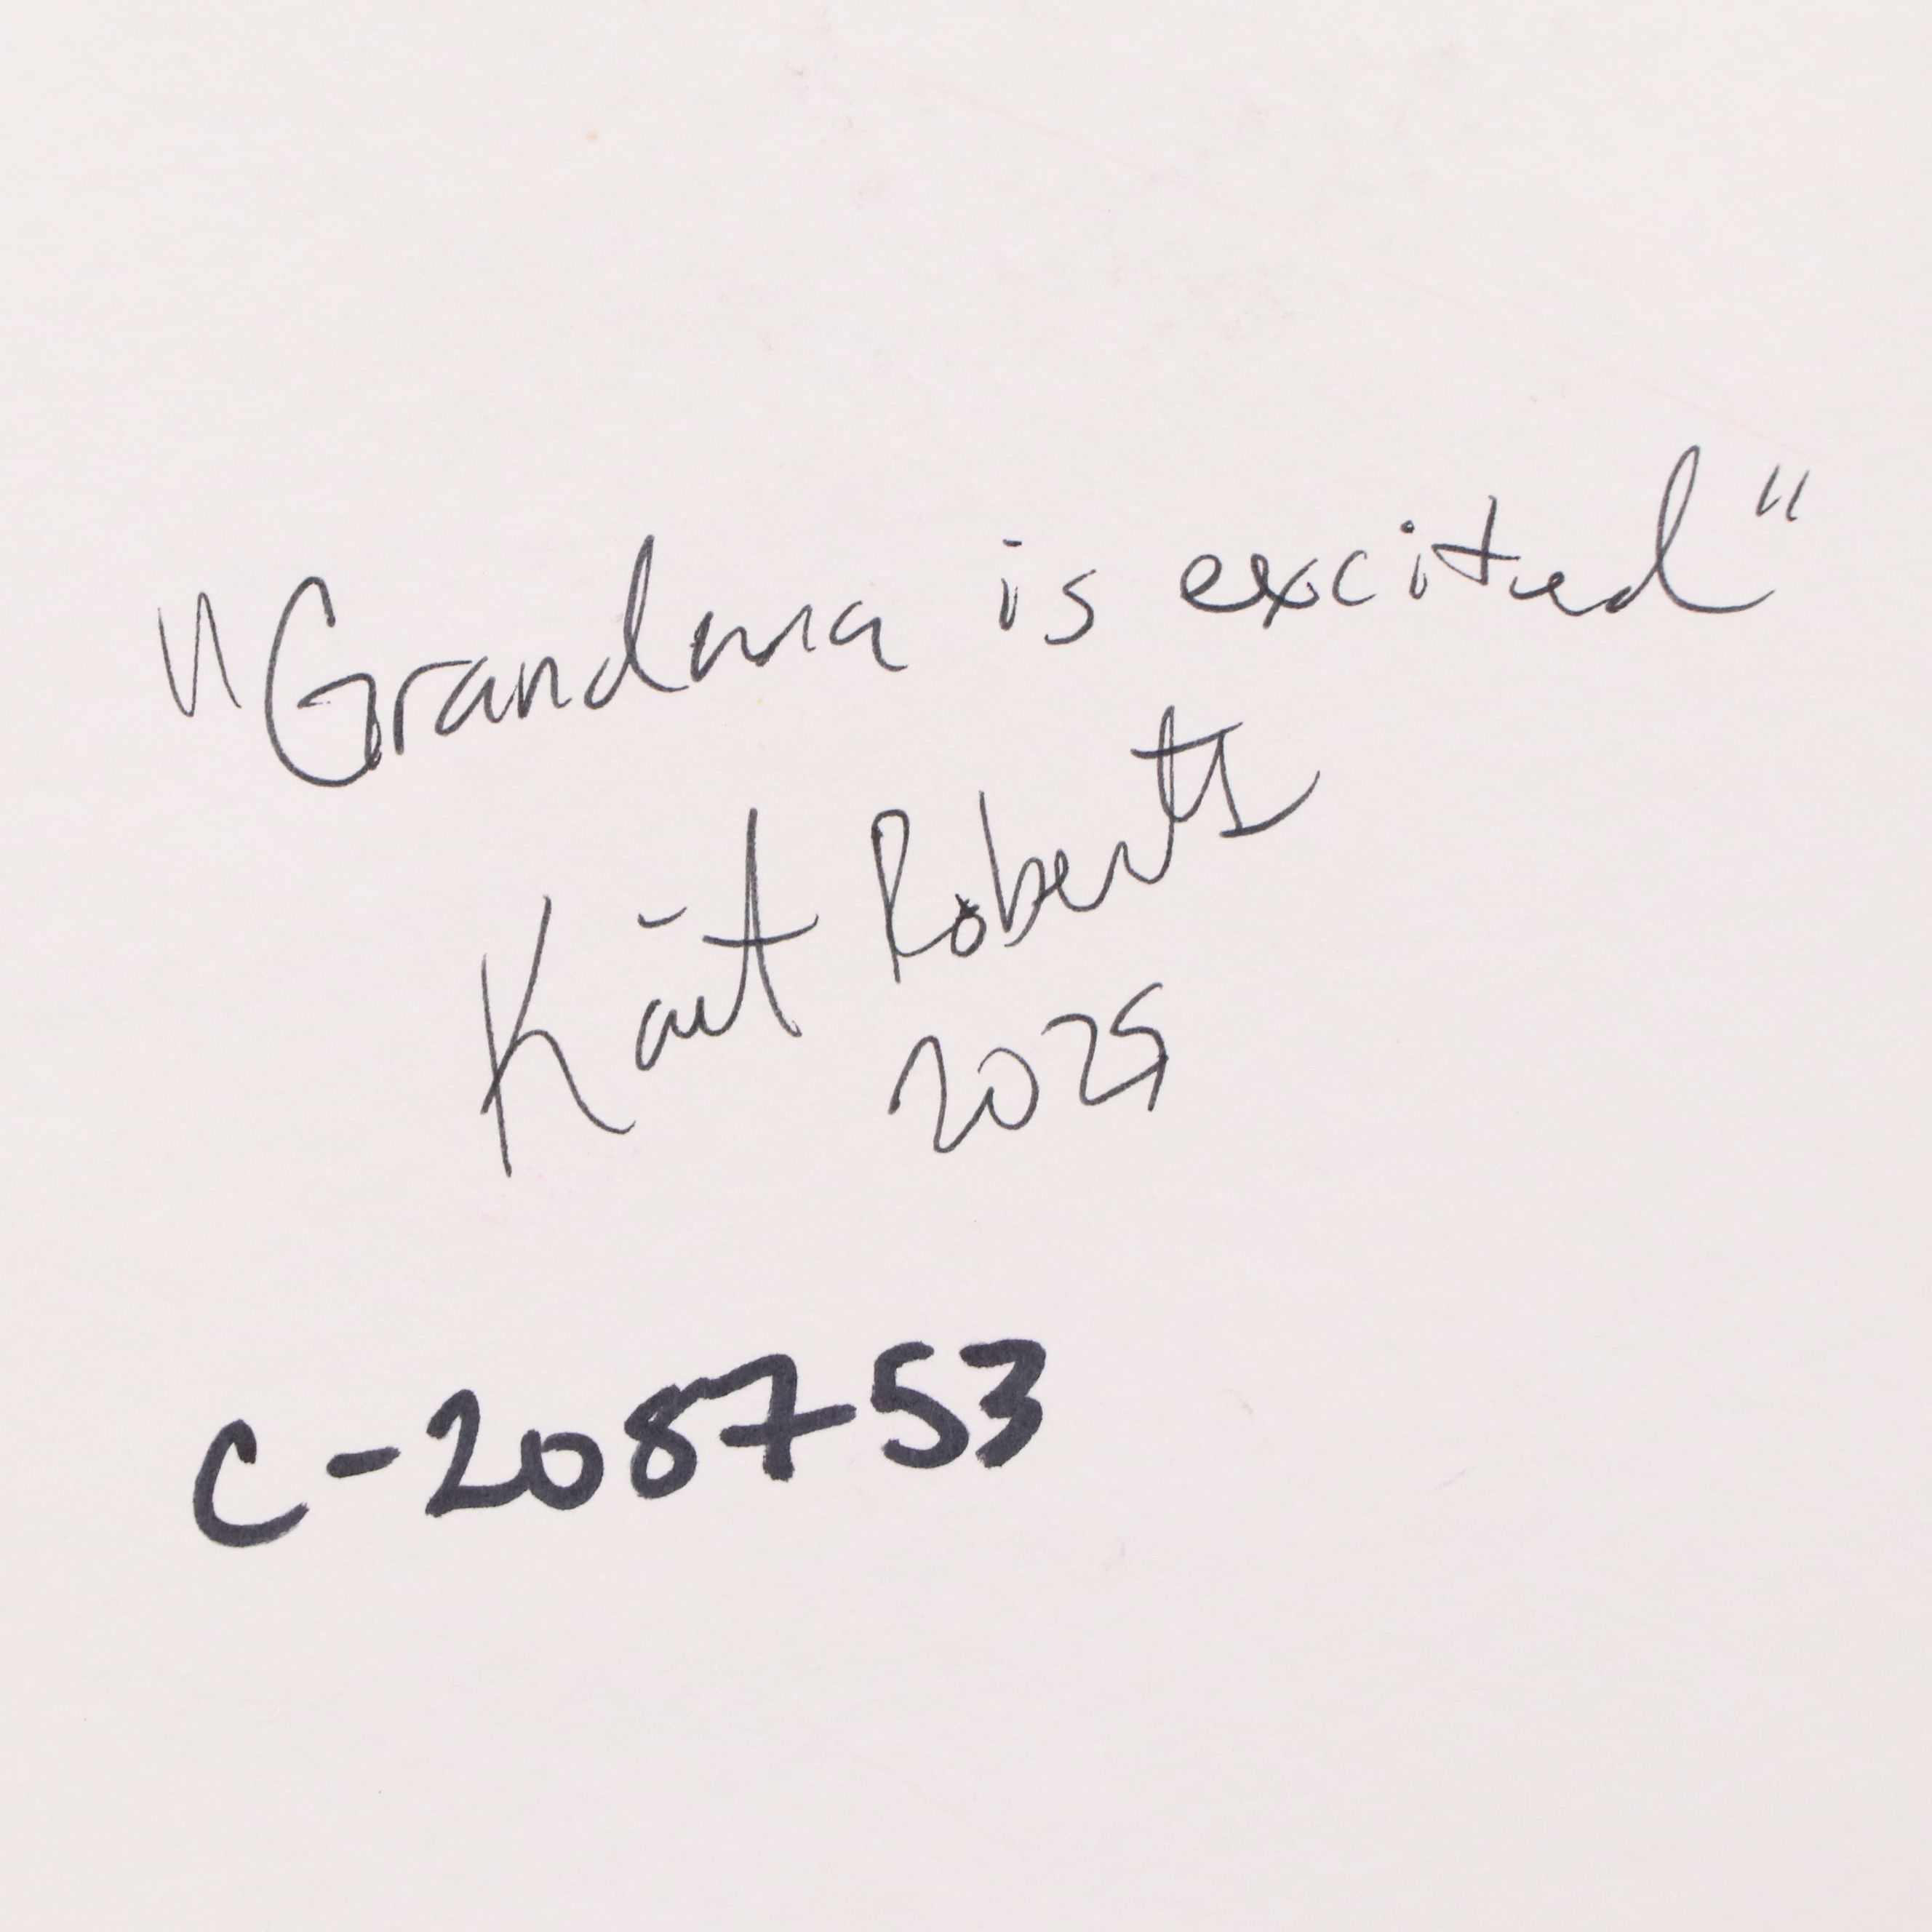 "Grandma is excited"
Kait Roberts
2025
C-208753